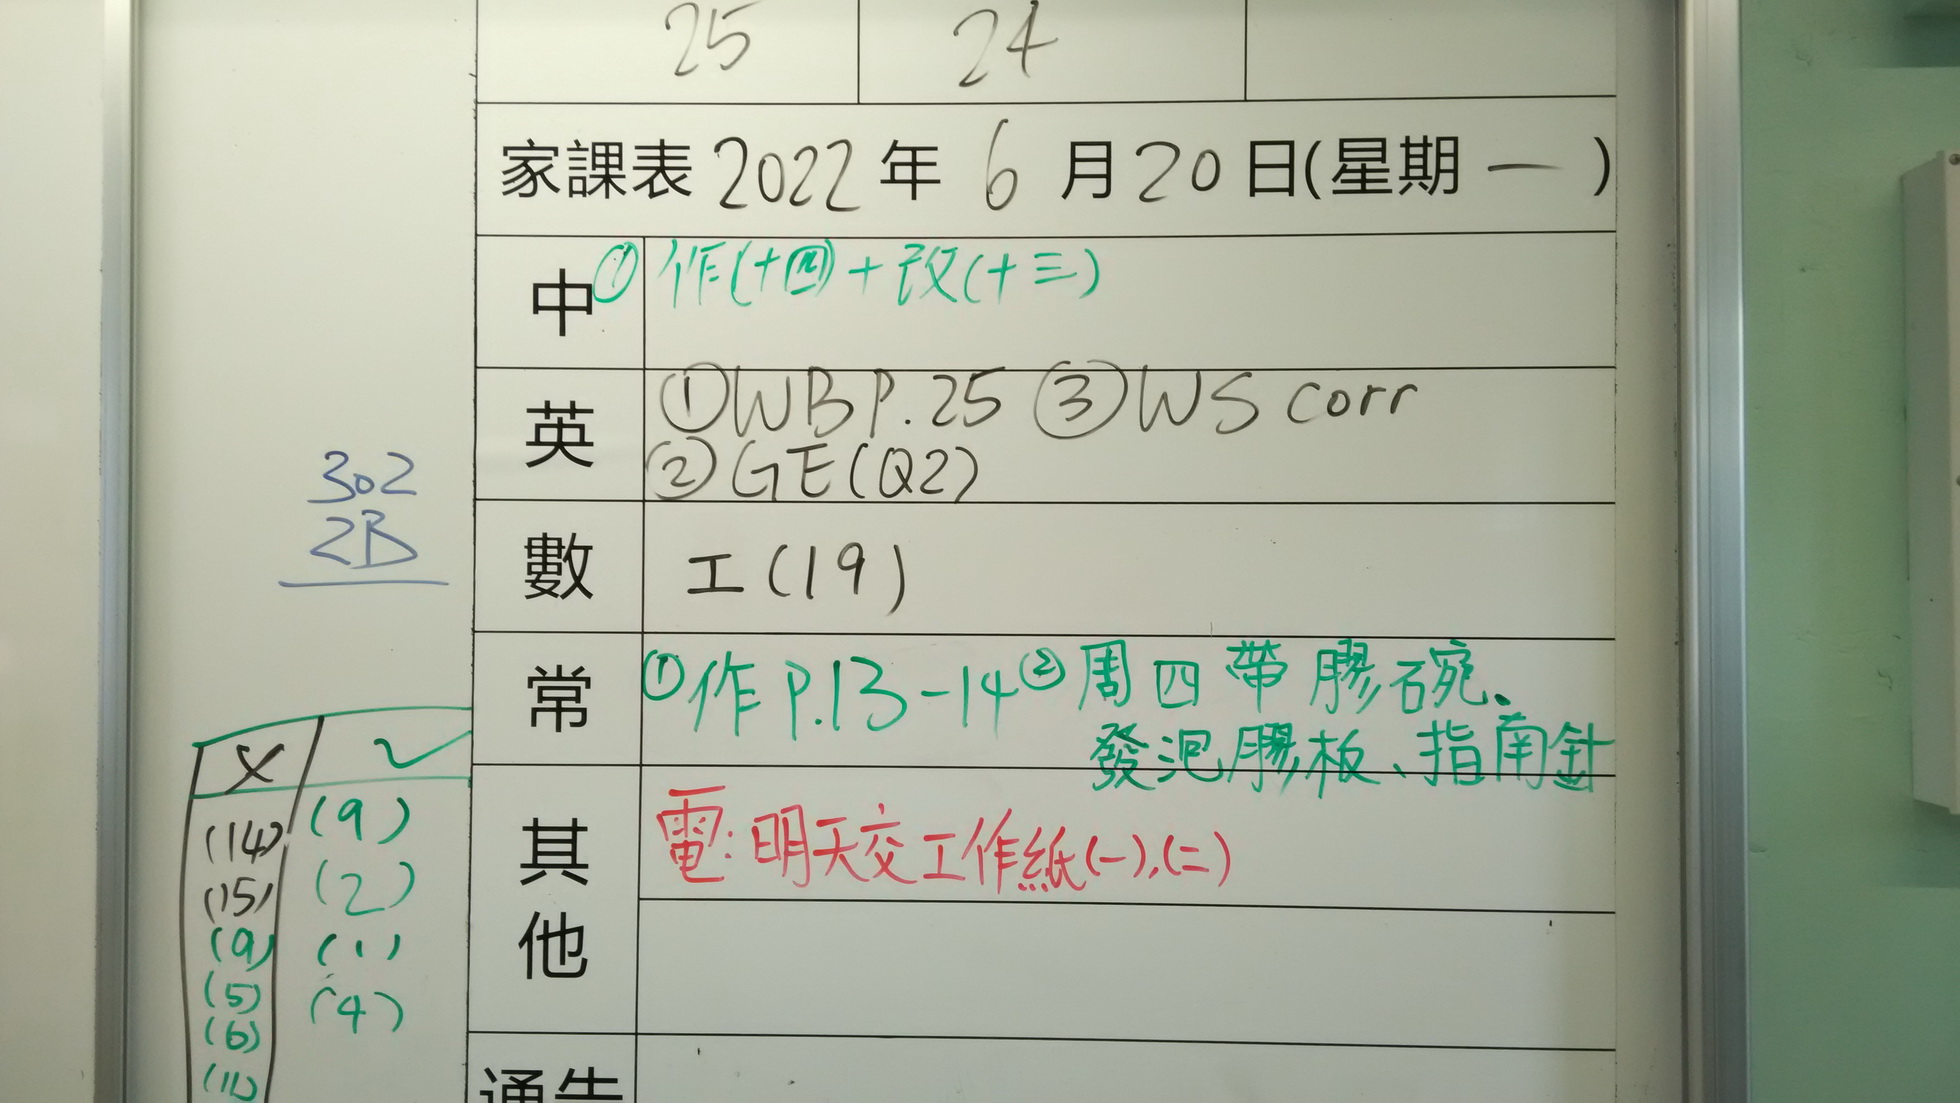 25 24
家課表 2022 年 6 月 20 日(星期 一 )
中 ① 作(十四)+改(十三)
英 ①WB P.25 ③WS corr
②GE(Q2)
數 工(19)
常 ①作 P.13-14 ②周四帶膠碗、
發泡膠板、指南針
其他 電:明天交工作紙(一),(二)
通告
302
2B
X ✓
(14) (9)
(15) (2)
(9) (1)
(5) (4)
(6)
(11)